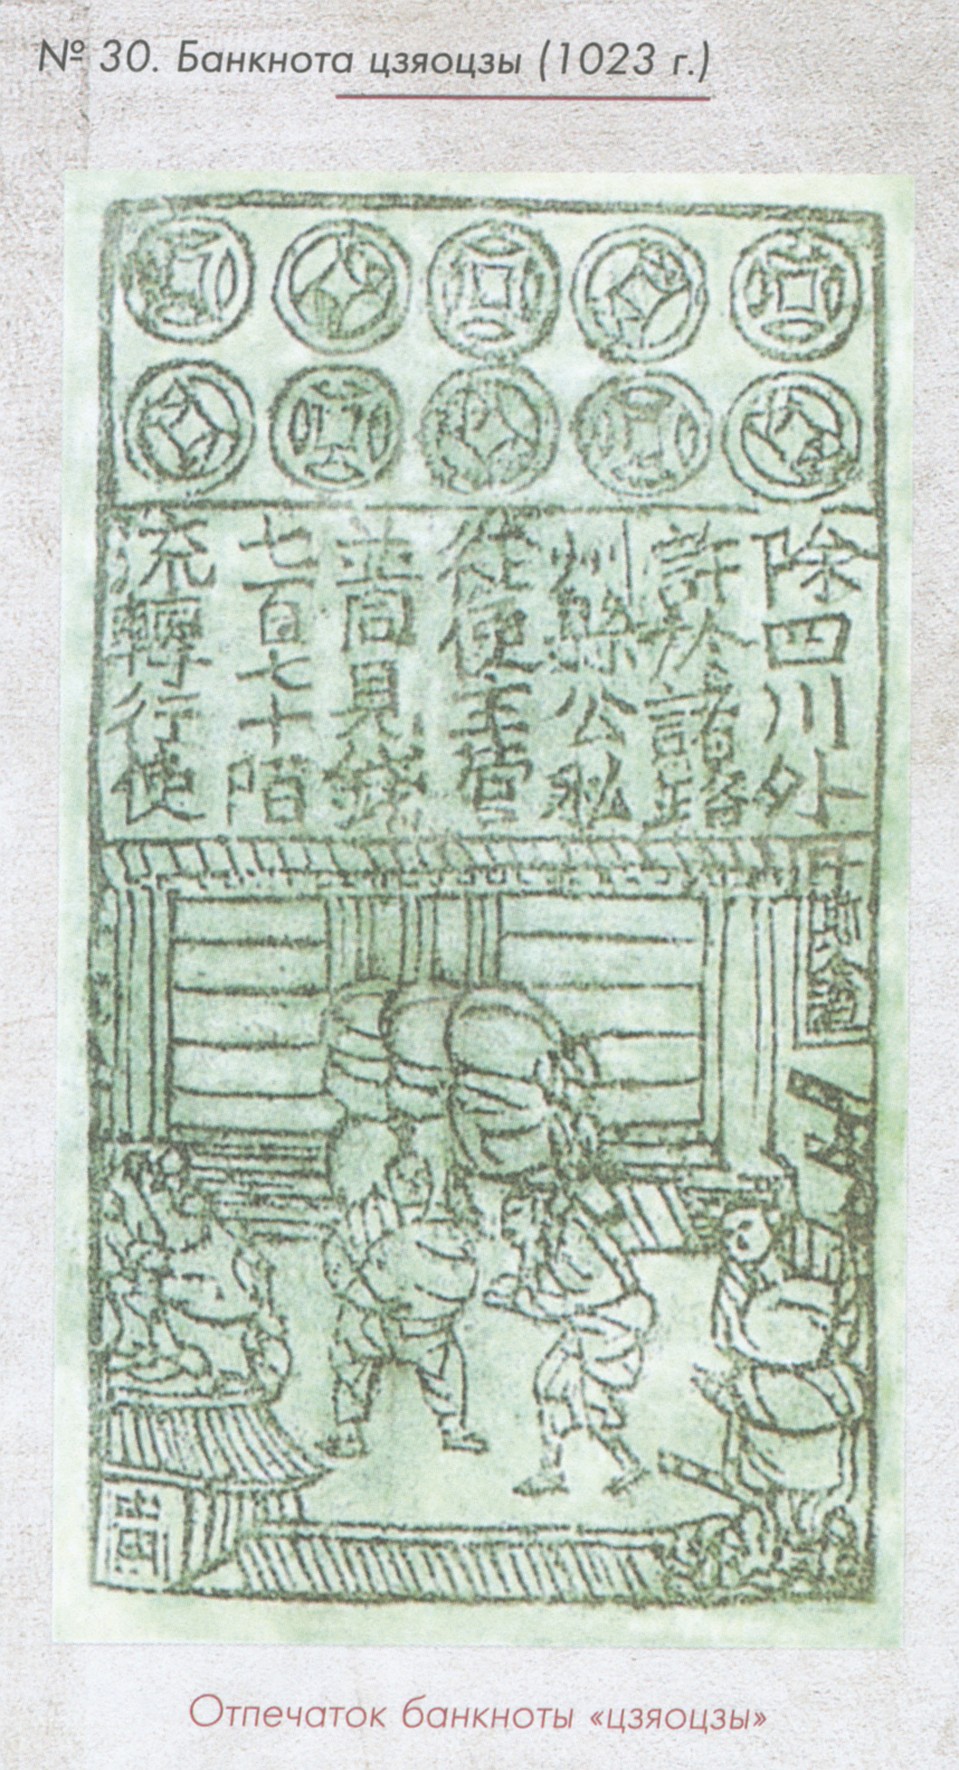 № 30. Банкнота цзяоцзы (1023 г.)
除四川外
許於諸路
州縣公私
從便主管
並同見錢
七百七十陌
流轉行使
Отпечаток банкноты «цзяоцзы»